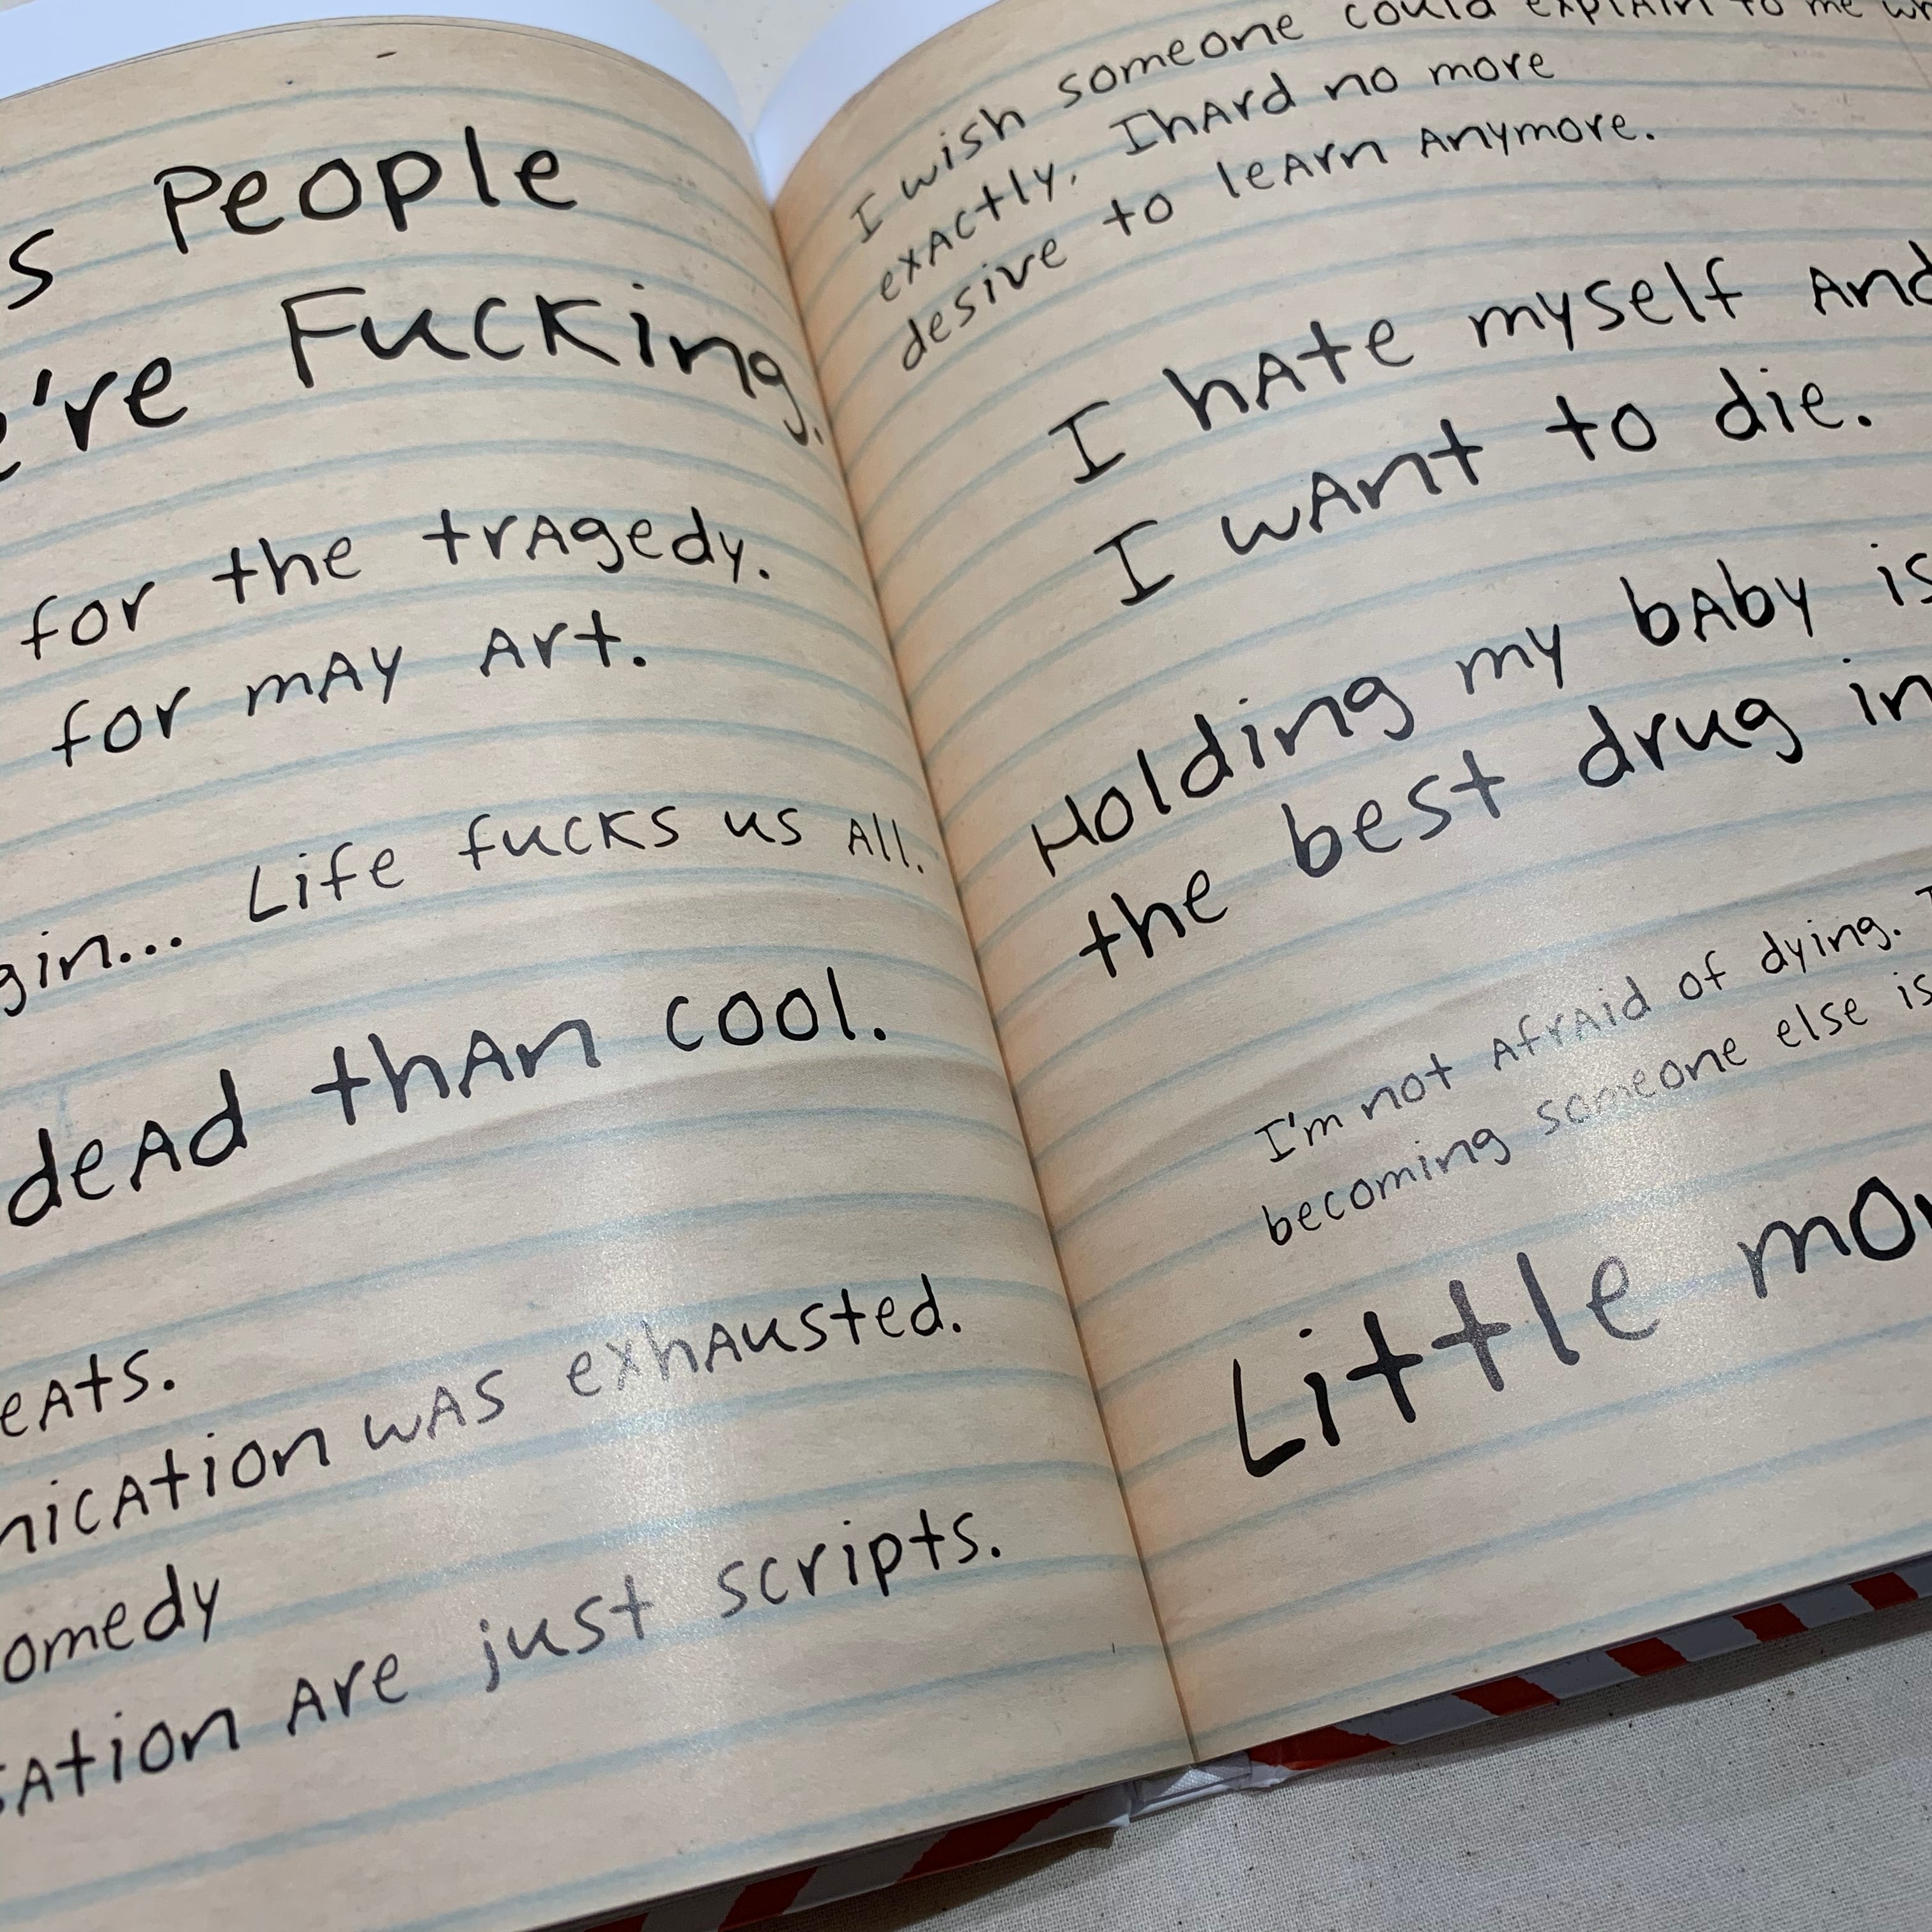 s People
're Fucking.
for the tragedy.
for may Art.
gin... Life fucks us All.
dead than cool.
eats.
nication was exhausted.
omedy
sation are just scripts.
I wish someone could explain to me wh
exactly, I hard no more
desive to learn anymore.
I hate myself and
I want to die.
Holding my baby is
the best drug in
I'm not afraid of dying.
becoming someone else is
Little mo